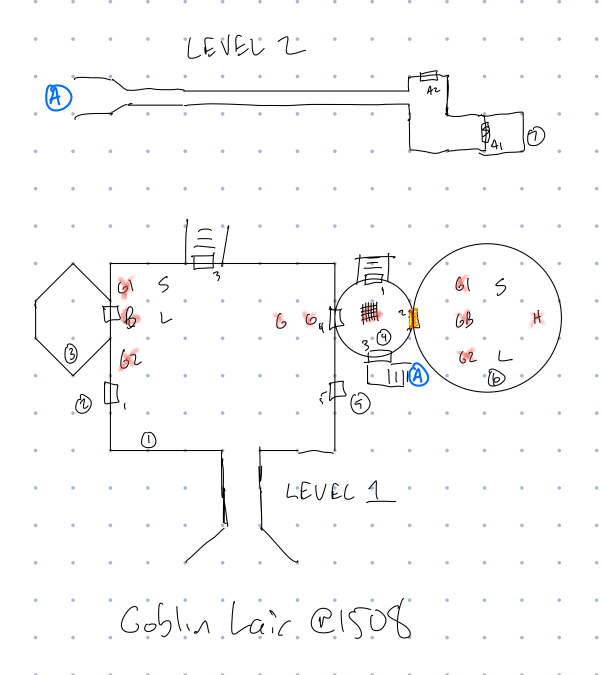 LEVEL 2
A
A2
A1
7
3
G1 S
B L
G2
3
2
1
1
G G 4
5
5
1
2
4
3
A
G1 S
GB H
G2 L
6
LEVEL 1
Goblin Lair @1508